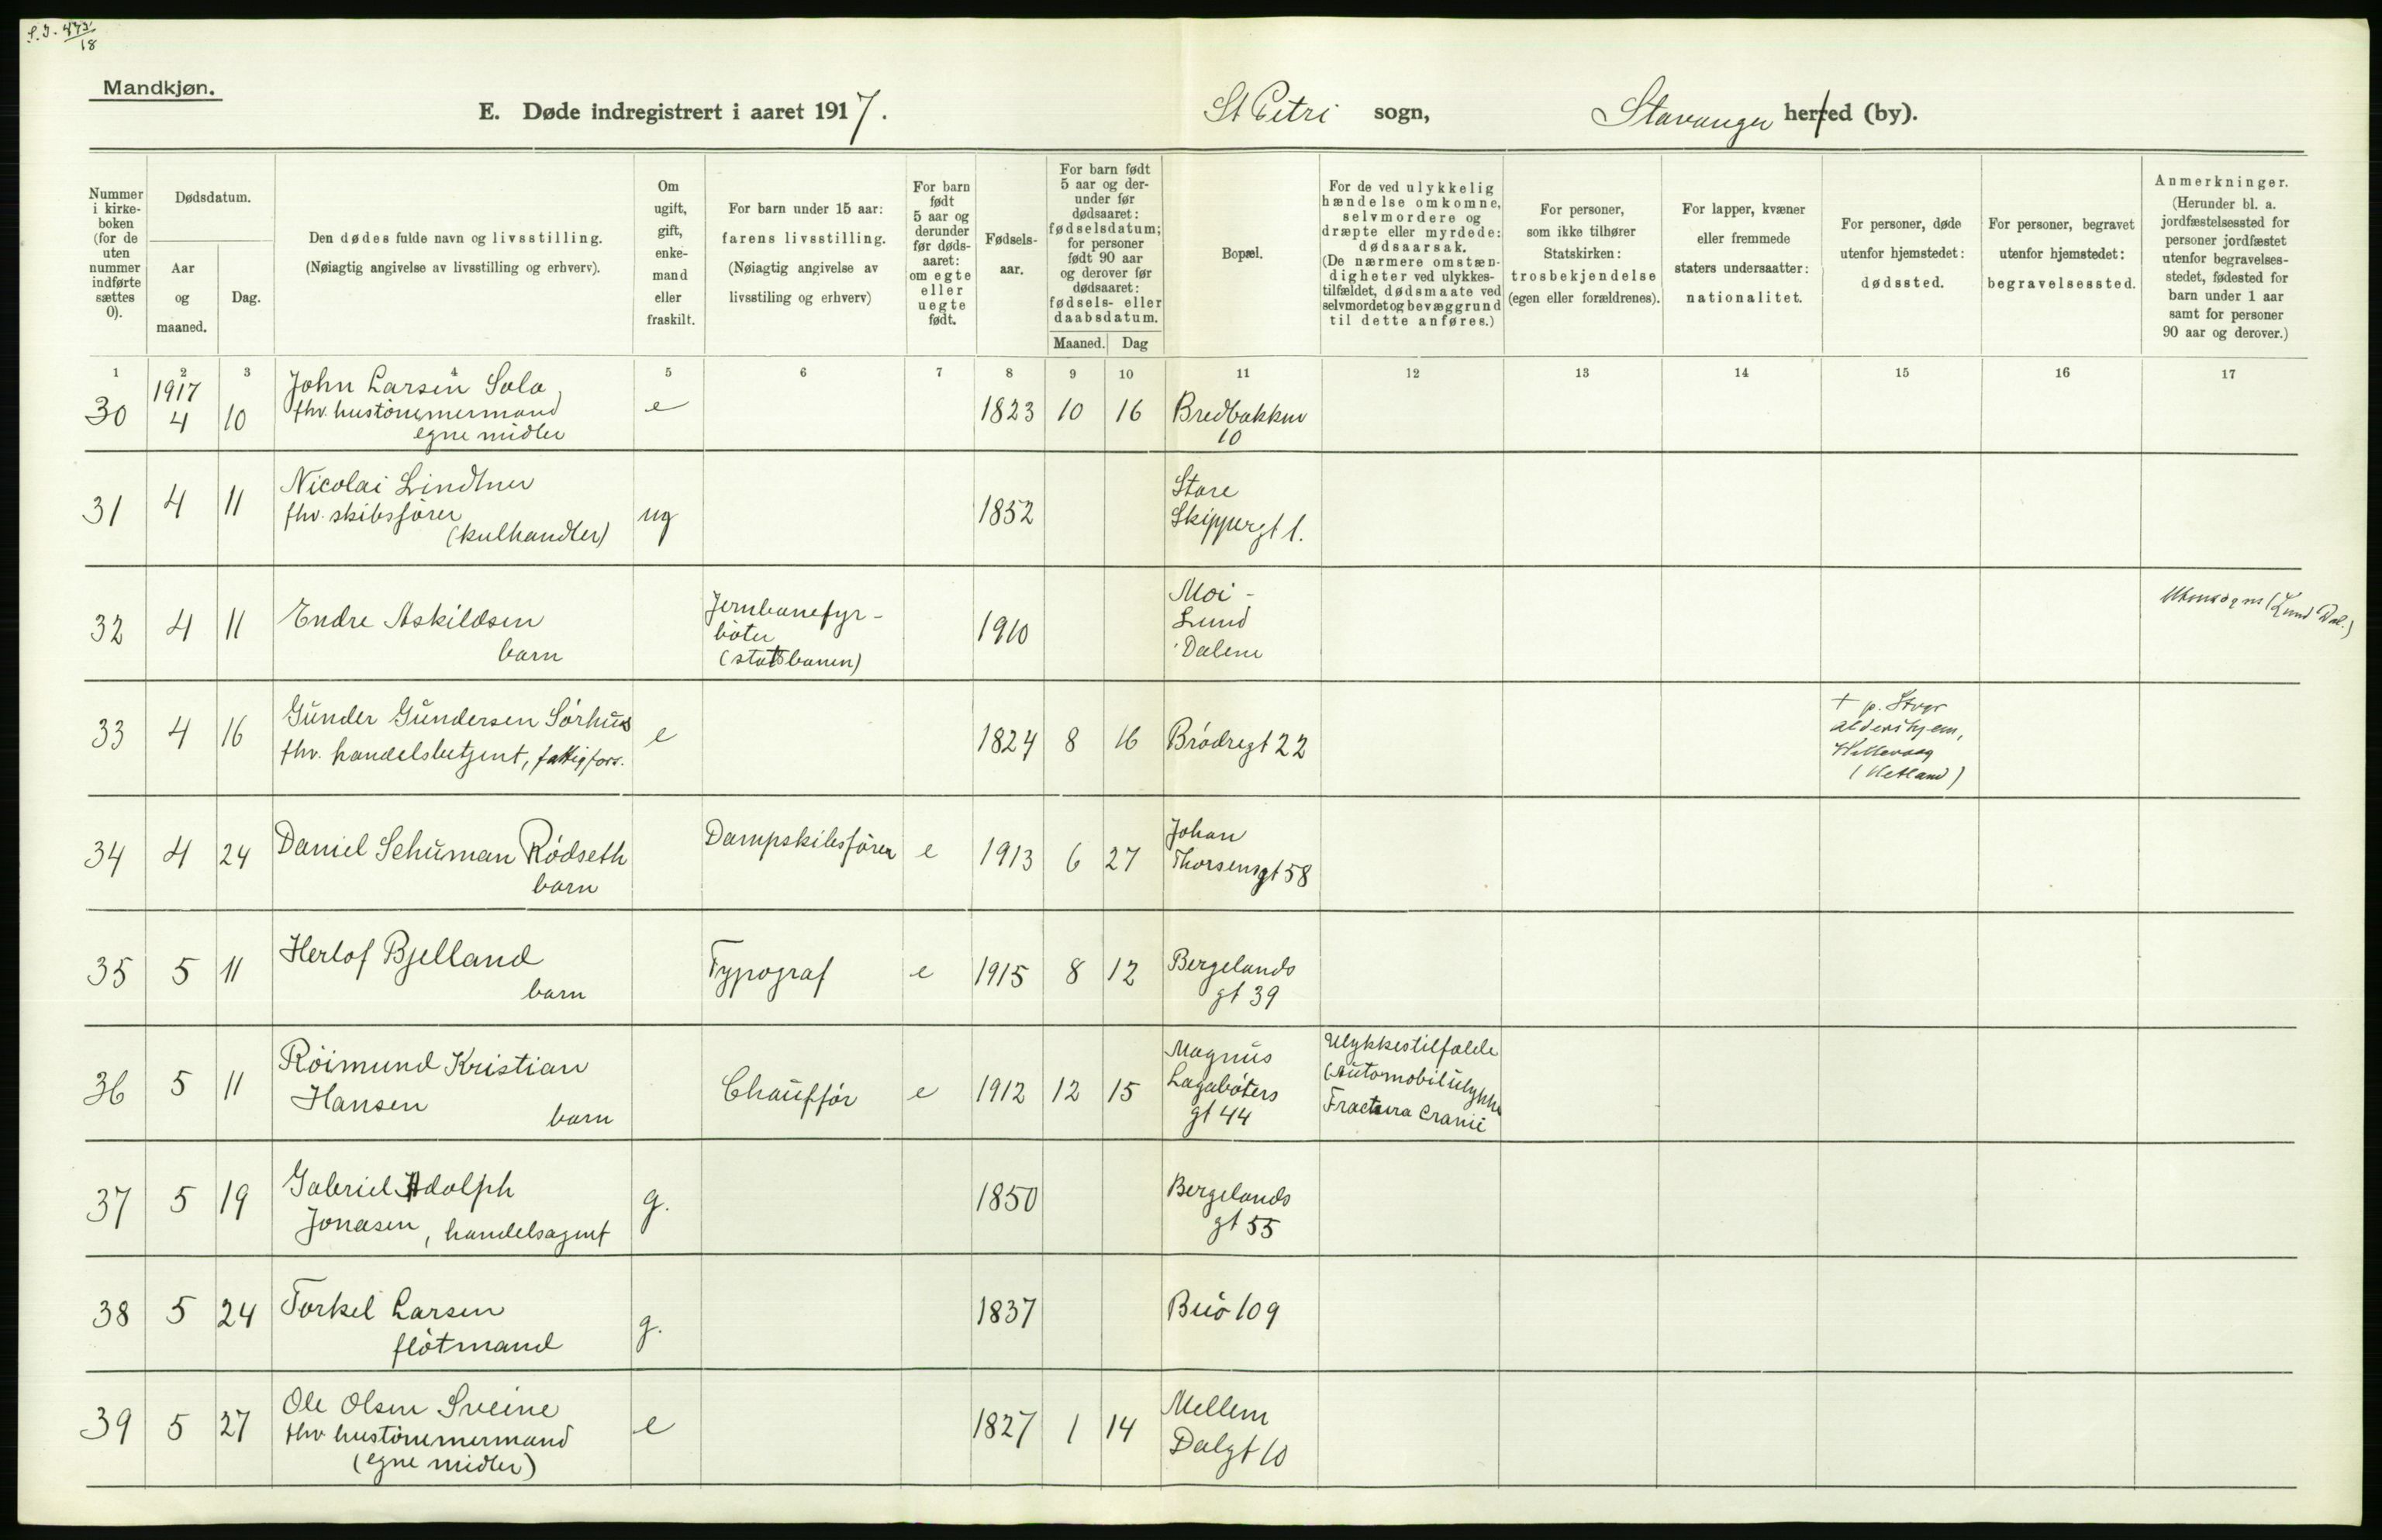 S.J. 473/18
Mandkjøn.
E. Døde indregistrert i aaret 1917. St Petri sogn, Stavanger herred (by).
Nummer i kirke-boken (for de uten nummer indførte sættes 0).
Dødsdatum.
Aar og maaned.
Dag.
Den dødes fulde navn og livsstilling.
(Nøiagtig angivelse av livsstilling og erhverv).
Om ugift, gift, enke-mand eller fraskilt.
For barn under 15 aar: farens livsstilling.
(Nøiagtig angivelse av livsstiling og erhverv)
For barn født 5 aar og derunder før døds-aaret: om egte eller uegte født.
Fødsels-aar.
For barn født 5 aar og der-under før dødsaaret: fødselsdatum; for personer født 90 aar og derover før dødsaaret: fødsels- eller daabsdatum.
Maaned. Dag
Bopæl.
For de ved ulykkelig hændelse omkomne, selvmordere og dræpte eller myrdede: dødsaarsak.
(De nærmere omstæn-digheter ved ulykkes-tilfældet, dødsmaate ved selvmordet og bevæggrund til dette anføres.)
For personer, som ikke tilhører Statskirken: trosbekjendelse (egen eller forældrenes).
For lapper, kvæner eller fremmede staters undersaatter: nationalitet.
For personer, døde utenfor hjemstedet: dødssted.
For personer, begravet utenfor hjemstedet: begravelsessted.
Anmerkninger.
(Herunder bl. a. jordfæstelsessted for personer jordfæstet utenfor begravelses-stedet, fødested for barn under 1 aar samt for personer 90 aar og derover.)
1 2 3 4 5 6 7 8 9 10 11 12 13 14 15 16 17
1917
30 4 10 John Larsen Sola, fhv. hustømmermand egne midler e 1823 10 16 Bredbakken 10
31 4 11 Nicolai Lindtner fhv. skibsfører (kulhandler) ug 1852 Store Skippergt 1.
32 4 11 Endre Askildsen barn Jernbanefyr-bøter (statsbanen) 1910 Moi - Lund Dalene Utensogns (Lund Dal.)
33 4 16 Gunder Gundersen Sørhus fhv. handelsbetjent, fattigfors. e 1824 8 16 Brødregt 22 + p. Stvgr aldershjem, Hillevaag (Hetland)
34 4 24 Daniel Schuman Rødseth barn Dampskibsfører e 1913 6 27 Johan Thorsensgt 58
35 5 11 Herlof Bjelland barn Typograf e 1915 8 12 Bergelands gt 39
36 5 11 Røimund Kristian Hansen barn Chauffør e 1912 12 15 Magnus Lagabøters gt 44 Ulykkestilfælde (Automobilulykke Fractura Cranii
37 5 19 Gabriel Adolph Jonasen, handelsagent g. 1850 Bergelands gt 55
38 5 24 Torkel Larsen fløtmand g. 1837 Buø 109
39 5 27 Ole Olsen Sveine fhv hustømmermand (egne midler) e 1827 1 14 Mellem Dalgt 10